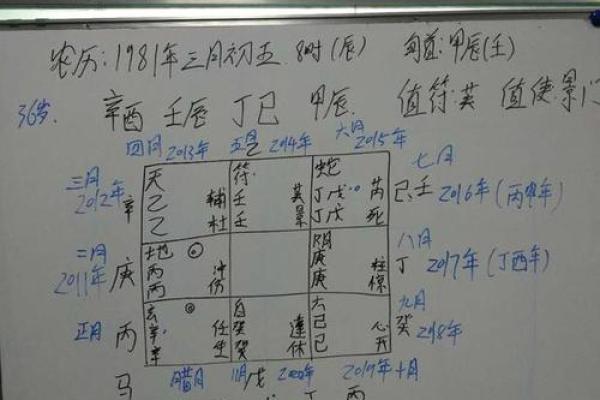 农历:1981年三月初五 8时(辰) 旬首:甲辰(壬)
36岁. 辛酉 壬辰 丁巳 甲辰. 值符:英 值使:景门
四月2013年 五月2014年 六月2015年
三月 2012年 辛 天 乙 乙 辅 杜 符 壬 壬 英 景 蛇 丁戊 丁戊 芮 死 己壬 七月 2016年(丙申年)
二月 2011年 庚 地 丙 丙 冲 伤 阴 庚 庚 柱 惊 丁 八月 2017年(丁酉年)
正月 丙 玄 辛 辛 任 生 白 癸 癸 蓬 休 六 己 己 心 开 癸 九月 2018年
马 腊月 11月 戊 2020年 2019年十月